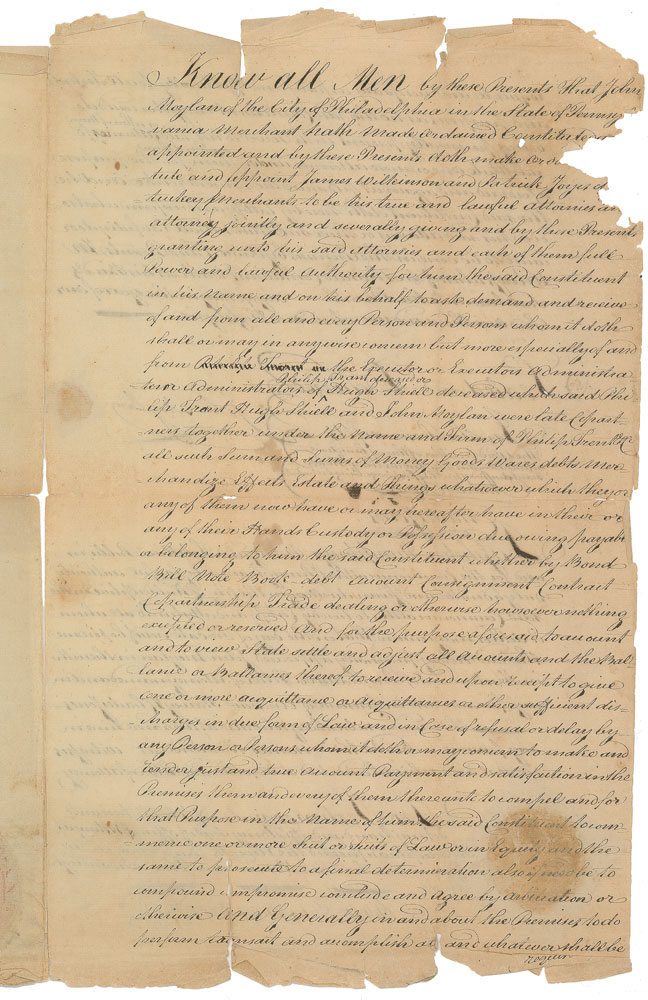 Know all Men by these Presents That John
Moylan of the City of Philadelphia in the State of Pennsyl
vania Merchant hath made ordained Constitute
appointed and by these Presents doth make or
tute and appoint James Wilkinson and Patrick Joyes
tuckey Merchants to be his true and lawful attornies an
attorney jointly and severally giving and by these Presents
granting unto his said Attornies and each of them full
Power and lawful Authority for him the said Constituent
in his Name and on his behalf to ask demand and receive
of and from all and every Person and Persons whom it doth
shall or may in any wise concern but more especially of and
from the Executor or Executors Administra
tor or Administrators of Philip Trant deced and or Hugh Shiell deceased which said Phi
lip Trant Hugh Shiell and John Moylan were late Copart
ners together under the Name and Firm of Philip Trent & Co
all such Sum and Sums of Money Goods Wares debts Mer
chandize Effects Estate and things whatsoever which they or
any of them now have or may hereafter have in their or
any of their Hands Custody or Possession due owing payab
or belonging to him the said Constituent whether by Bond
Bill Note Book debt account Consignment Contract
Copartnership Trade dealing or otherwise howsoever nothing
excepted or reserved And for the purpose aforesaid to account
and to view State settle and adjust all accounts and the Bal
lance or Ballances thereof to receive and upon receipt to give
one or more acquittance or acquittances or other sufficient dis
charges in due form of Law and in Case of refusal or delay by
any Person or Persons whom it doth or may concern to make and
render just and true account Payment and satisfaction in the
Premises them and every of them thereunto to compel and for
that Purpose in the Name of him the said Constituent to com
mence one or more Suit or Suits of Law or in Equity and the
same to prosecute to a final determination also if need be to
compound compromise conclude and agree by arbitration or
otherwise And Generally in and about the Premises to do
perform transact and accomplish all and whatever shall be
requi